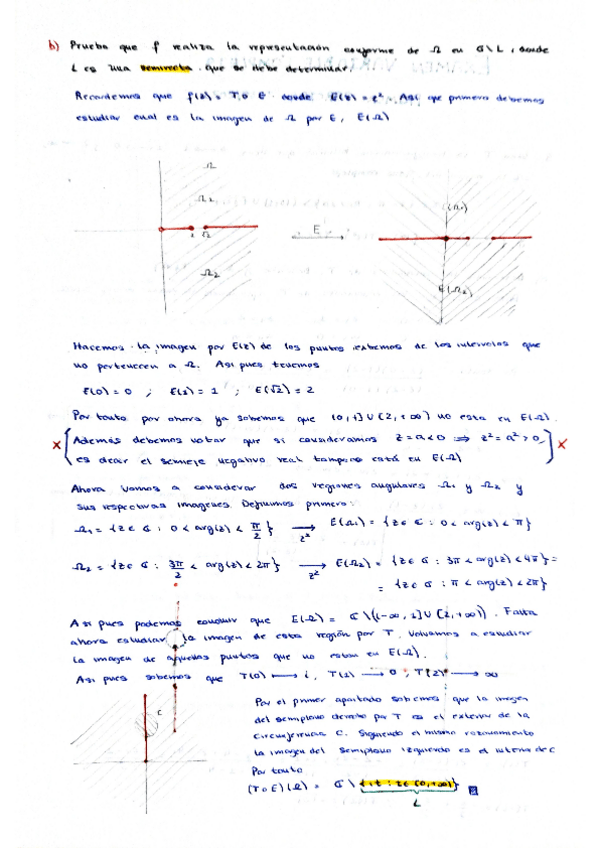 b) Prueba que f realiza la representación conforme de Ω en ℂ\L, donde
L es una semirecta que se debe determinar.
Recordemos que f(z) = T∘E donde E(z) = z². Así que primero debemos
estudiar cual es la imagen de Ω por E, E(Ω)
Ω
Ω₂
1 √2
Ω₂
E
E(Ω₂)
Hacemos la imagen por E(z) de los puntos extremos de los intervalos que
no pertenecen a Ω. Así pues tenemos
E(0) = 0 ; E(1) = 1 ; E(√2) = 2
Por tanto por ahora ya sabemos que (0,1] ∪ [2,+∞) no esta en E(Ω).
x [Además debemos notar que si consideramos z = a < 0 ⟹ z² = a² > 0,
es decir el semieje negativo real tampoco está en E(Ω)] x
Ahora vamos a considerar dos regiones angulares Ω₁ y Ω₂ y
sus respectivas imagenes. Definimos primero:
Ω₁ = {z ∈ ℂ : 0 < arg(z) < π/2} ⟶ z² E(Ω₁) = {z ∈ ℂ : 0 < arg(z) < π}
Ω₂ = {z ∈ ℂ : 3π/2 < arg(z) < 2π} ⟶ z² E(Ω₂) = {z ∈ ℂ : 3π < arg(z) < 4π} =
= {z ∈ ℂ : π < arg(z) < 2π}
Así pues podemos concluir que E(Ω) = ℂ\((-∞,1] ∪ [2,+∞)). Falta
ahora estudiar la imagen de esta región por T. Volvamos a estudiar
la imagen de aquellos puntos que no estan en E(Ω).
Así pues sabemos que T(0) ⟼ i, T(1) ⟶ 0, T(2) ⟶ ∞
C
Por el primer apartado sabemos que la imagen
del semiplano derecho por T es el exterior de la
circunferencia C. Siguiendo el mismo razonamiento
la imagen del semiplano izquierdo es el interno de C
Por tanto
(T∘E)(Ω) = ℂ \ {it : t ∈ [0,+∞)}
L